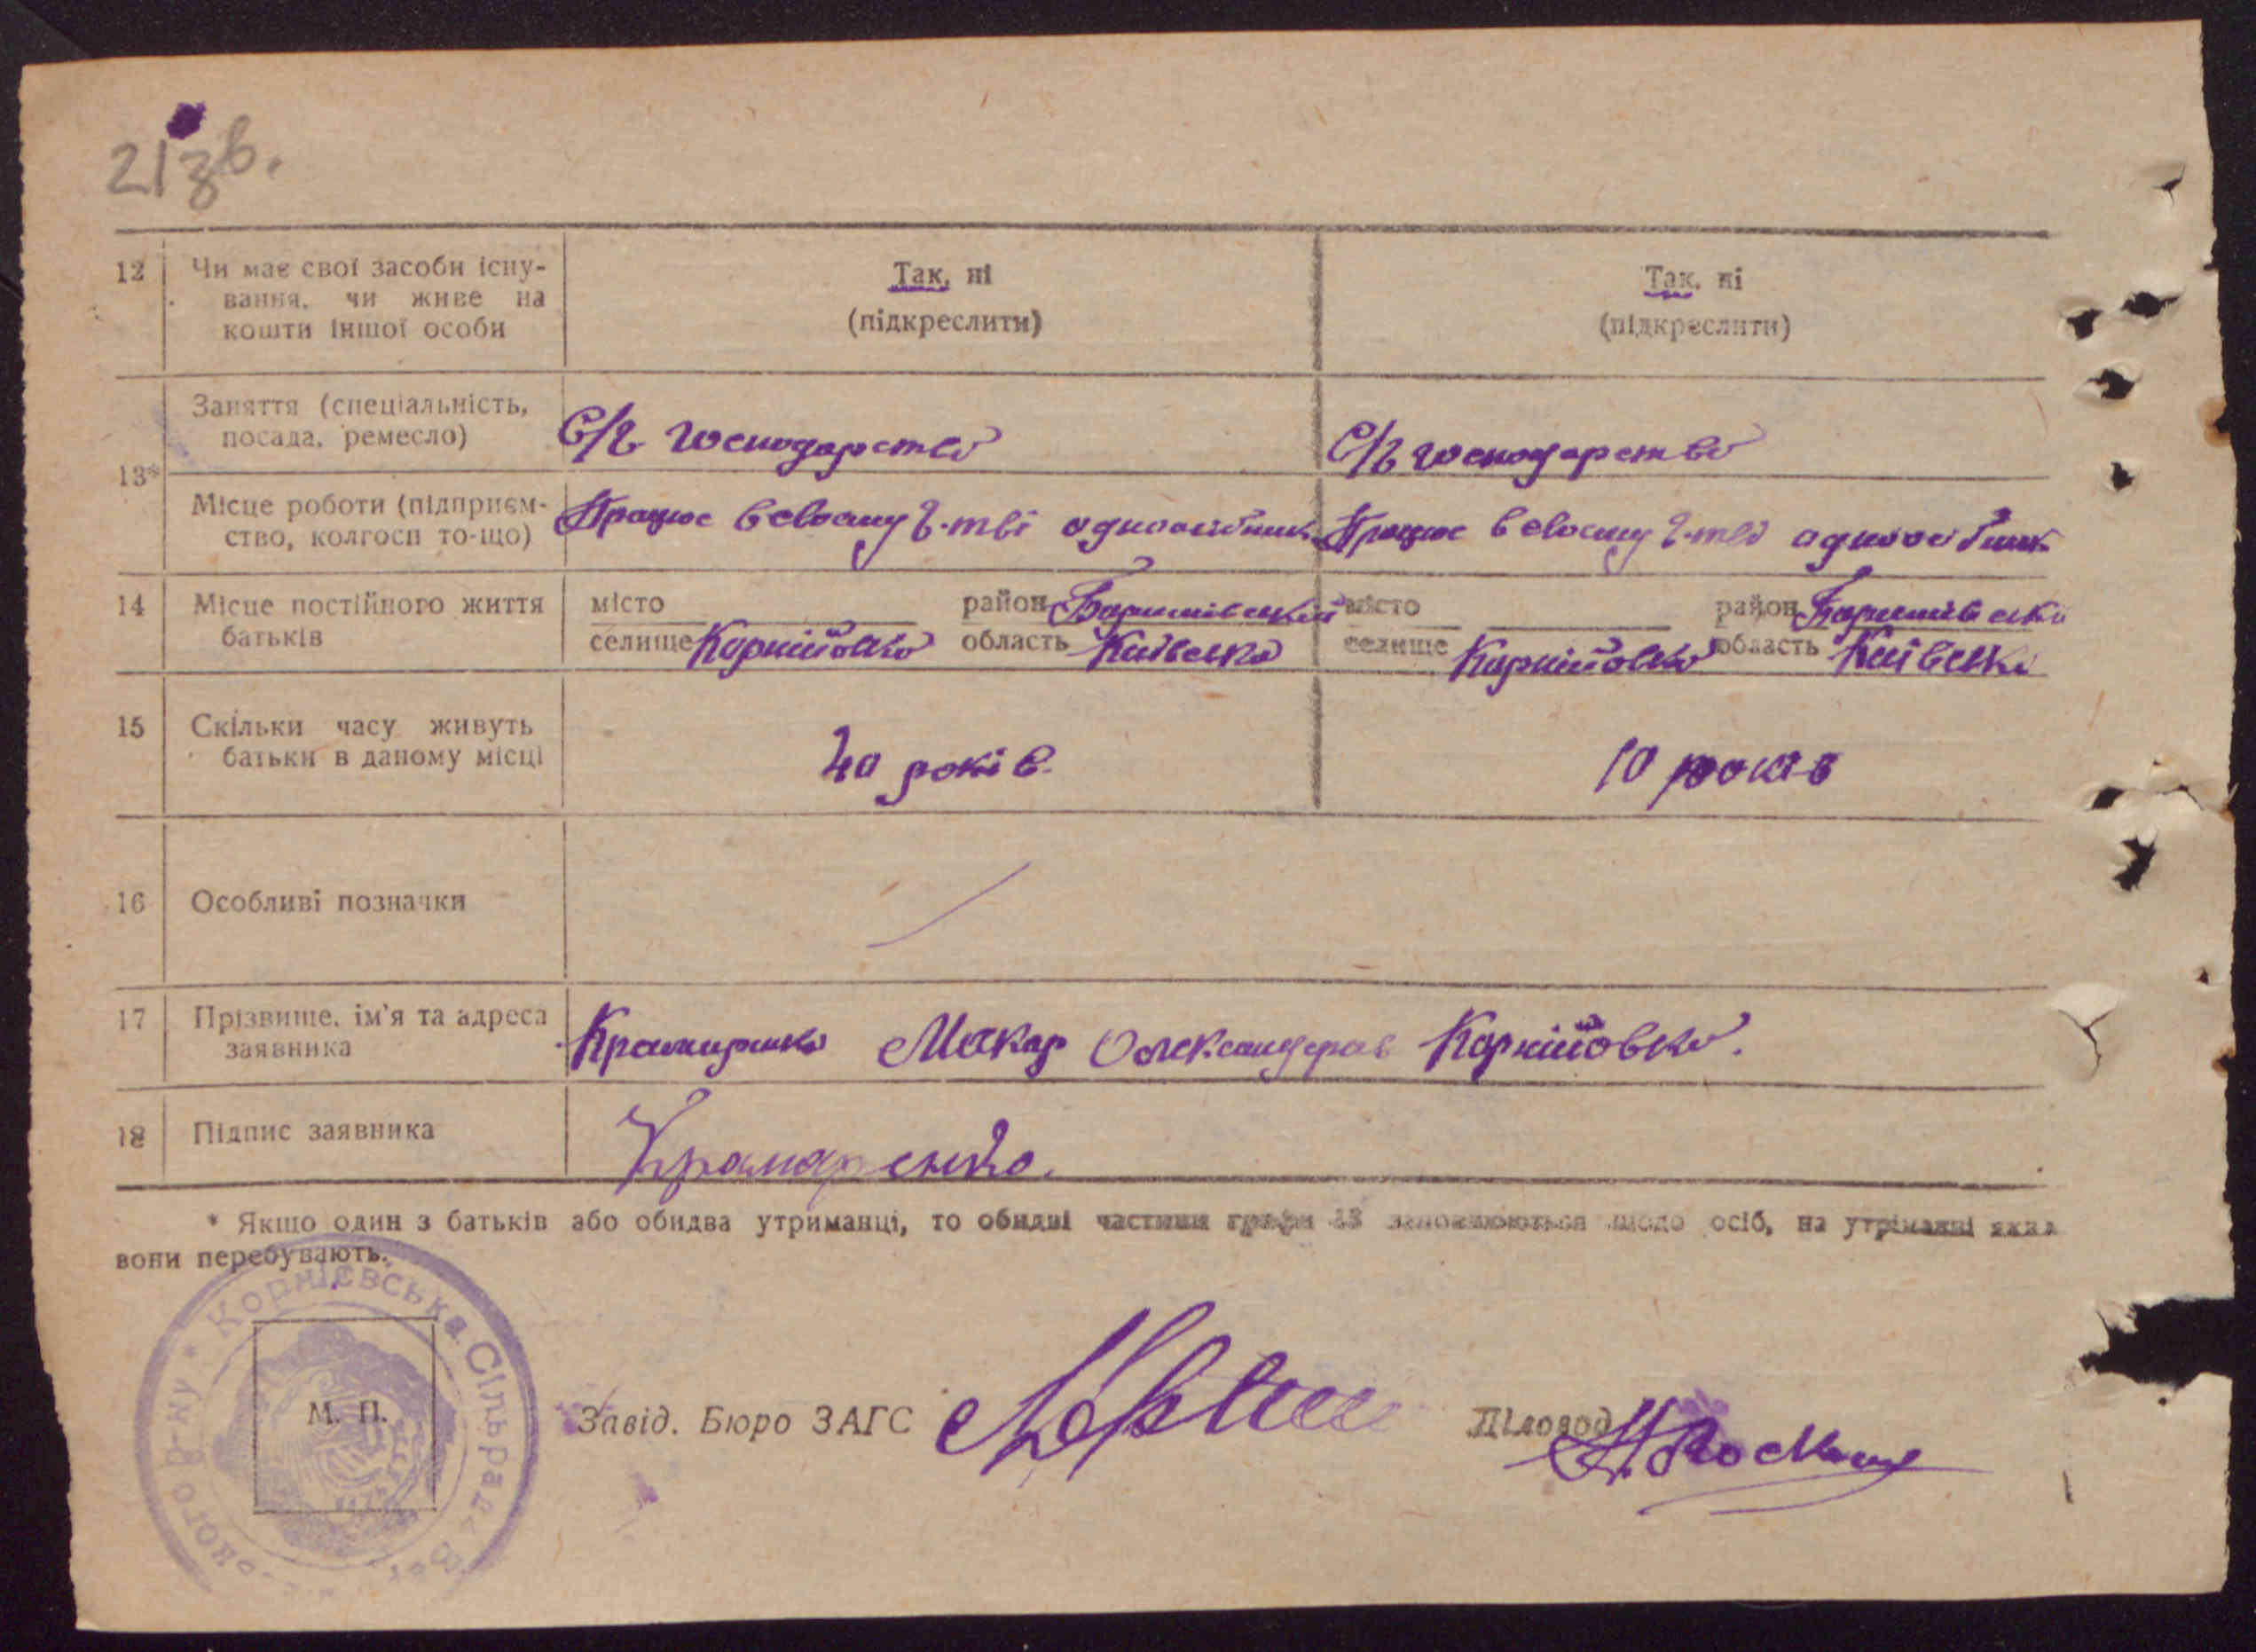 21зв.
12 Чи має свої засоби існу-
вання, чи живе на
кошти іншої особи
Так, ні
(підкреслити)
Так, ні
(підкреслити)
13*
Заняття (спеціальність,
посада, ремесло)
С/г господарство
С/г господарство
Місце роботи (підприєм-
ство, колгосп то-що)
Працює в свому г-тві одноосібник
Працює в свому г-тві одноосібник
14 Місце постійного життя
батьків
місто район Баришівський
селище Корніївка область Київська
місто район Баришівський
селище Корніївка область Київська
15 Скільки часу живуть
батьки в даному місці
40 років
10 років
16 Особливі позначки
17 Прізвище, ім'я та адреса
заявника
Крамаренко Макар Олександров Корніївка.
18 Підпис заявника
Крамаренко.
* Якщо один з батьків або обидва утриманці, то обидві частини графи 13 заповнюються щодо осіб, на утріманні яких
вони перебувають.
Корнієвська Сільрада
р-ну
М. П.
Завід. Бюро ЗАГС
Діловод